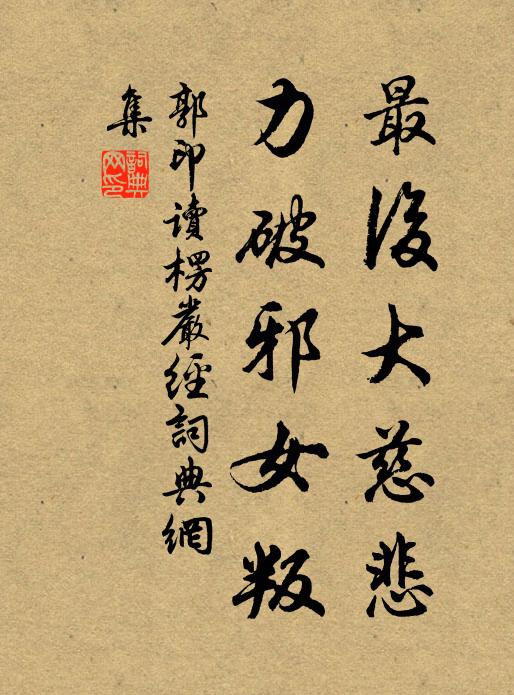 最後大慈悲
力破邪女叛
郭印讀楞嚴經詞典網
集
詞典網印